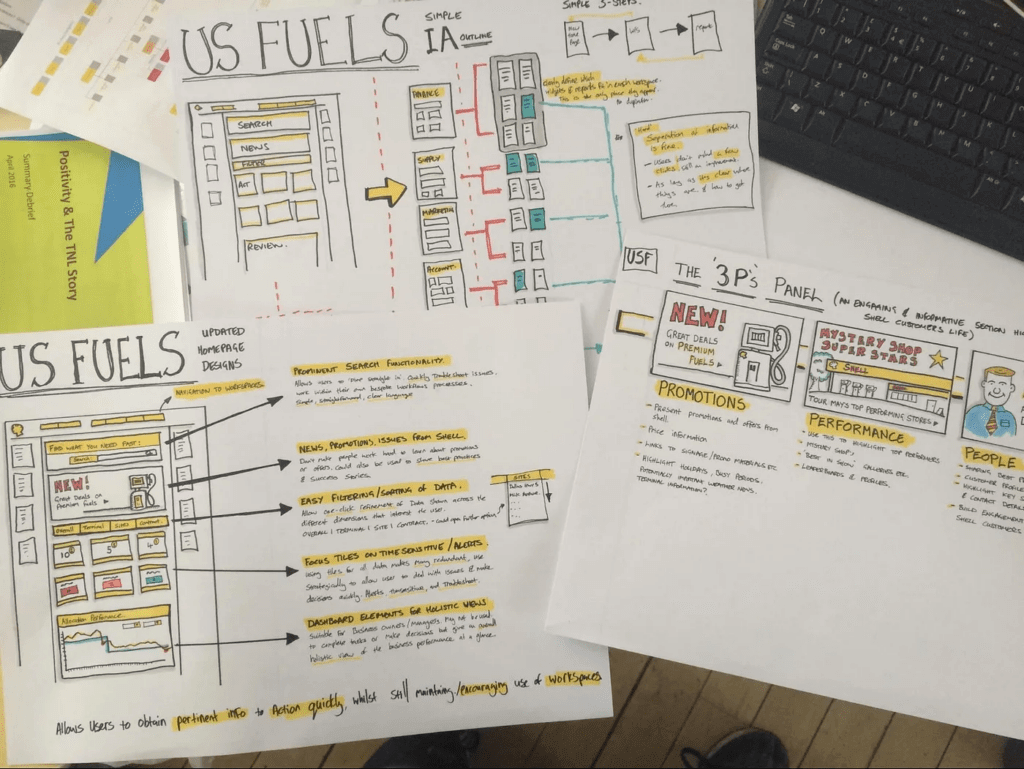 US FUELS
SIMPLE
IA OUTLINE
SIMPLE 3-STEPS.
report
SEARCH
NEWS
FILTER
REVIEW.
FINANCE
SUPPLY
MARKETING
ACCOUNT
clearly define which
widgets & reports fit in each workspace.
This is the only place they appear
Separation of information
is fine.
- Users don't mind a few
clicks
- As long as it's clear where
things are & how to get
there.
Positivity & The TNL Story
Summary Debrief
April 2016
US FUELS
UPDATED
HOMEPAGE
DESIGNS
NAVIGATION TO WORKSPACES
FIND WHAT YOU NEED FAST:
Search
NEW!
Great Deals on
Premium Fuels
Overall
Terminal
Sites
Contract
Allocation Performance
PROMINENT SEARCH FUNCTIONALITY.
Allows users to 'dive straight in'. Quickly Troubleshoot issues.
work within their own bespoke workflows processes.
Simple, straightforward, clear language
NEWS, PROMOTIONS, ISSUES FROM SHELL.
Don't make people work hard to learn about promotions
or offers, could also be used to share best practices
& success stories.
EASY FILTERING/SORTING OF DATA.
Allow one-click refinement of Data shown across the
different dimensions that interest the user.
OVERALL | TERMINAL | SITE | CONTRACT. - could open further options
SITES
FOCUS TILES ON TIME SENSITIVE / ALERTS.
Using tiles for all data makes many redundant, use
strategically to allow user to deal with issues & make
decisions quickly. Alerts, transactions, and troubleshoot.
DASHBOARD ELEMENTS FOR HOLISTIC VIEWS
Suitable for Business owners/Managers. May not be used
to complete tasks or make decisions but give an overall
holistic view of the business performance at a glance.
Allows Users to obtain pertinent info to Action quickly, whilst still maintaining/encouraging use of workspaces
USF
THE '3P's PANEL (AN ENGAGING & INFORMATIVE SECTION
SHELL CUSTOMERS LIFE)
NEW!
GREAT DEALS
ON PREMIUM
FUELS
MYSTERY SHOP
SUPER STARS
SHELL
TOUR MAY'S TOP PERFORMING STORES
PROMOTIONS
- Present promotions and offers from
Shell.
- Price information
- LINKS TO SIGNAGE/PROMO MATERIALS ETC.
- HIGHLIGHT HOLIDAYS, BUSY PERIODS.
POTENTIALLY IMPORTANT WEATHER NEWS.
TERMINAL INFORMATION?
PERFORMANCE
- USE THIS TO HIGHLIGHT TOP PERFORMERS
- MYSTERY SHOPS
- 'BEST IN SHOW' GALLERIES ETC.
- LEADERBOARDS & PROFILES.
PEOPLE
- SHARING BEST
- CUSTOMER PROFILES
- HIGHLIGHT KEY
& CONTACT DETAILS
- BUILD ENGAGEMENT
SHELL CUSTOMERS